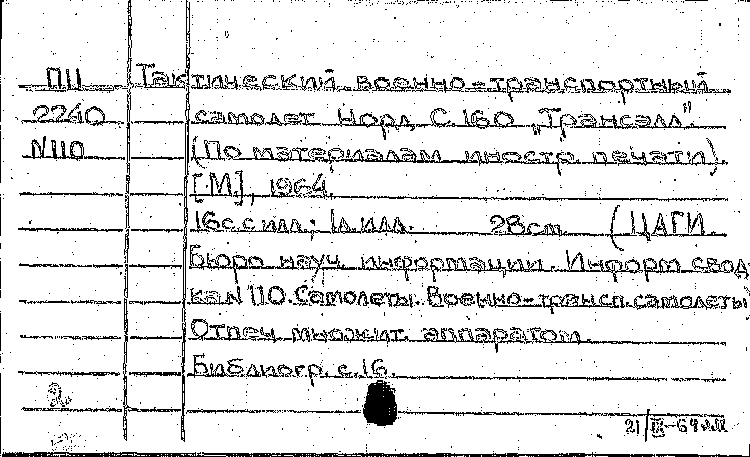 П11 Тактический военно-транспортный
2240 самолет Норд С.160 „Трансалл".
N110 (По материалам иностр. печати).
[М], 1964.
16с. с илл.; 1л. илл. 28см (ЦАГИ.
Бюро науч. информации. Информ. свод
ка N 110. Самолеты. Военно-трансп. самолеты)
Отпеч. множит. аппаратом.
Библиогр. с.16.
2